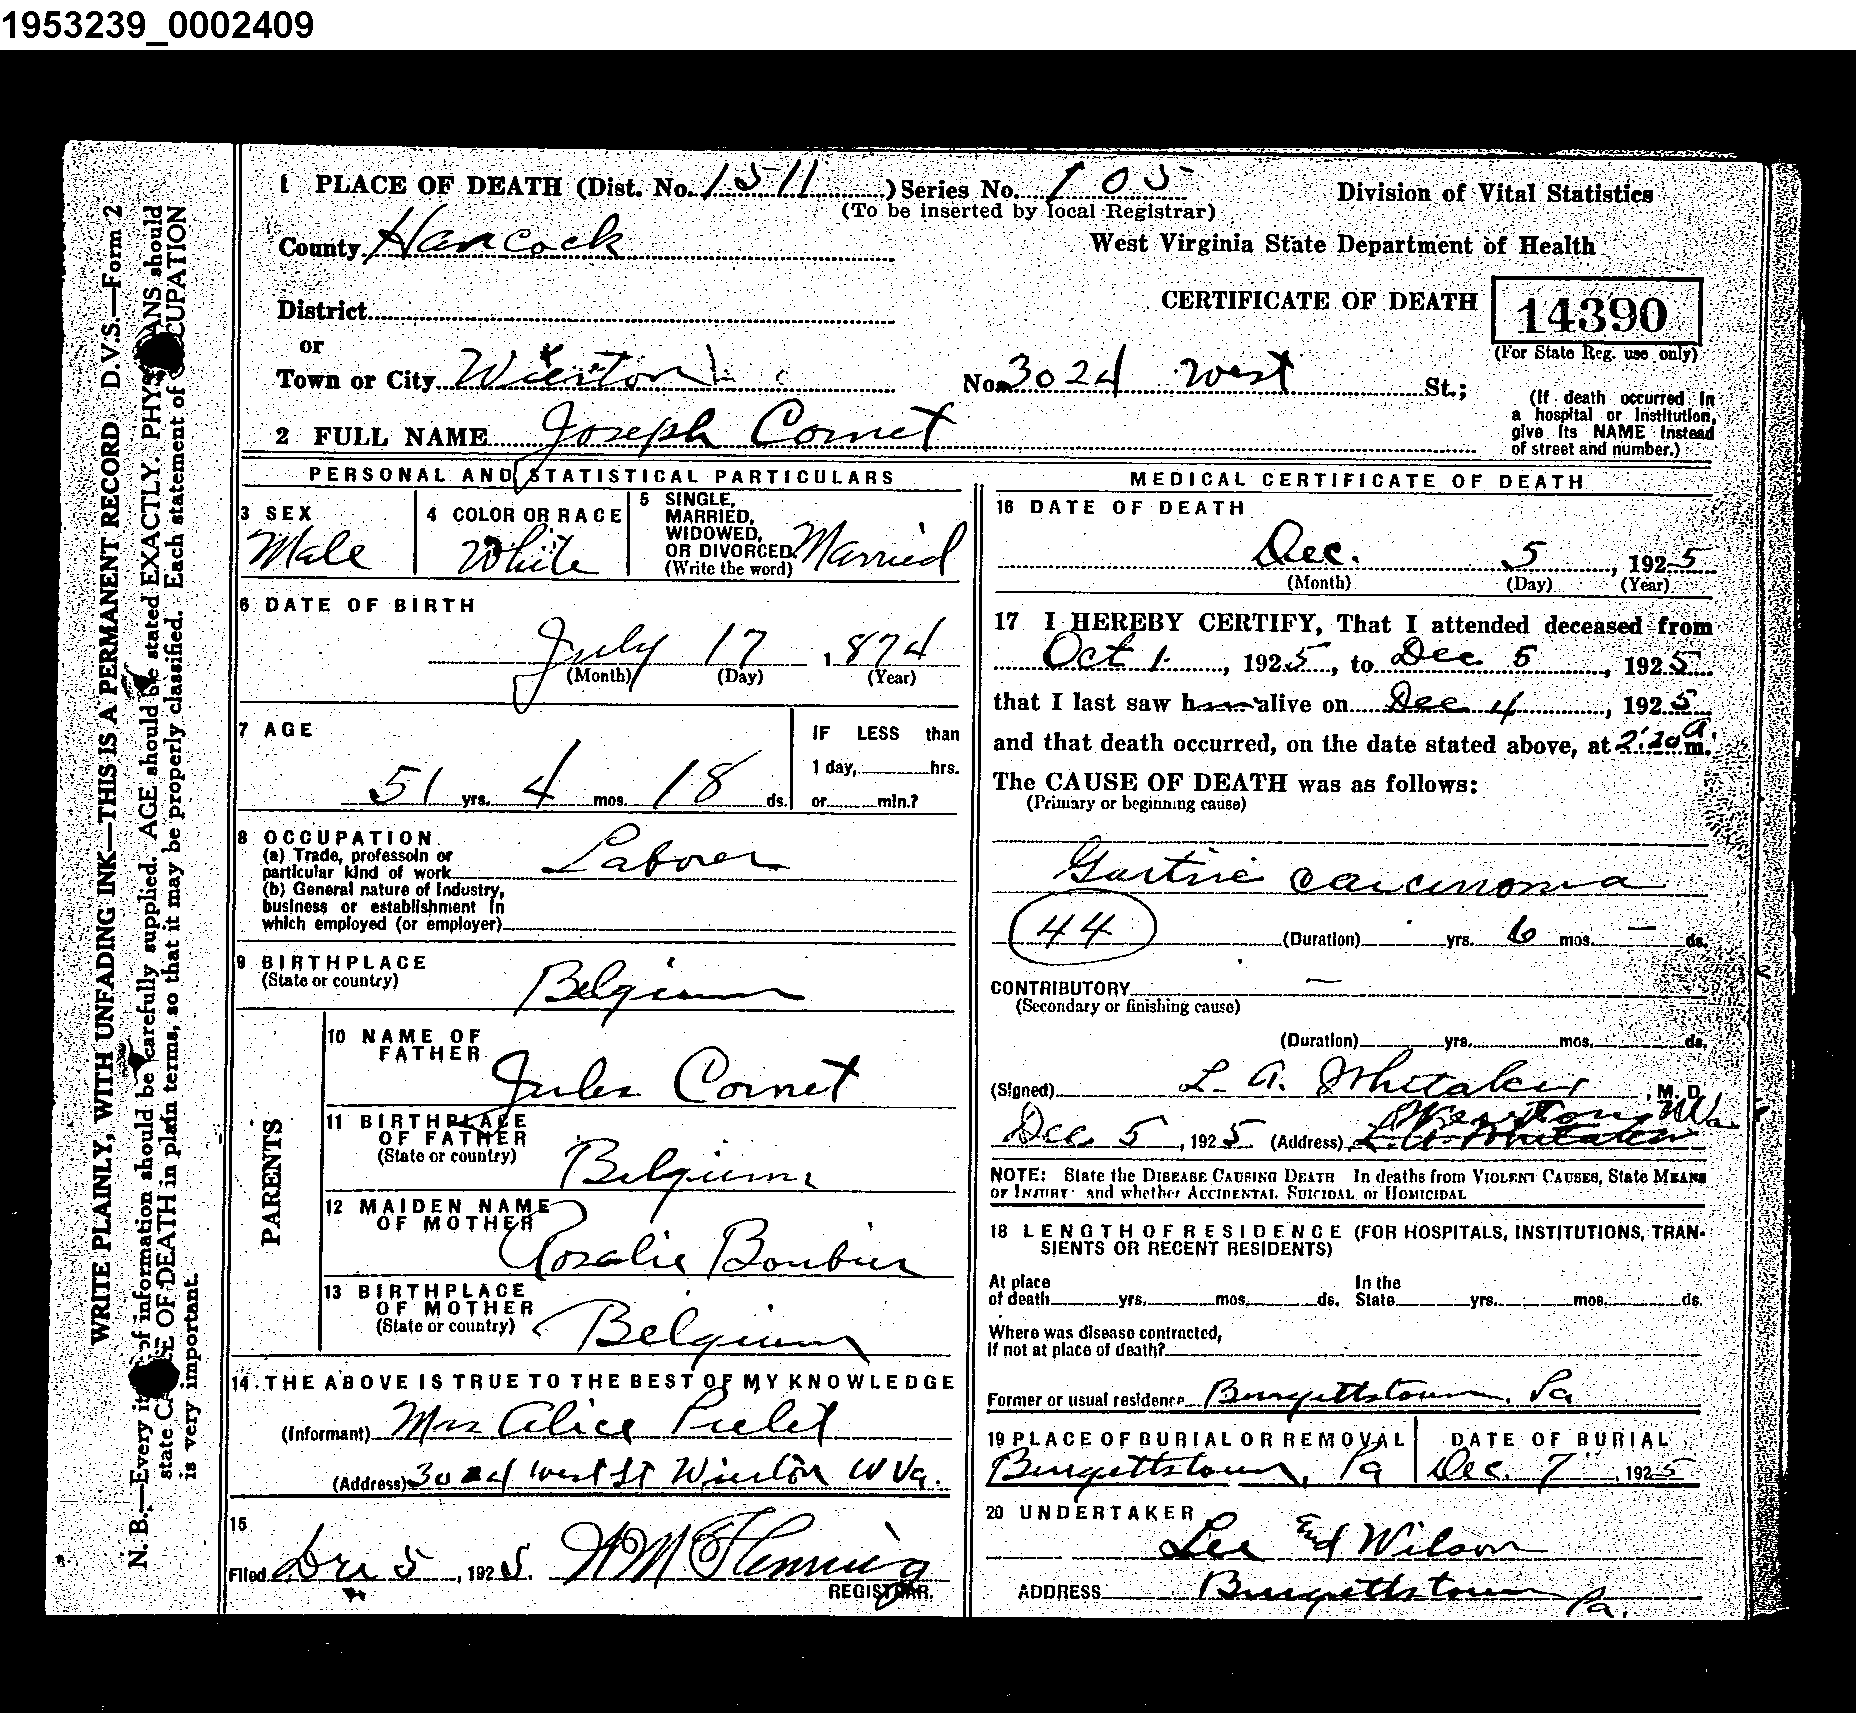 1953239_0002409
1 PLACE OF DEATH (Dist. No. 1511) Series No. 105
(To be inserted by local Registrar)
Division of Vital Statistics
County Hancock
West Virginia State Department of Health
District
CERTIFICATE OF DEATH 14390
(For State Reg. use only)
or
Town or City Wierton No. 3024 West St.;
(If death occurred in
a hospital or institution,
give its NAME instead
of street and number.)
2 FULL NAME Joseph Cornet
PERSONAL AND STATISTICAL PARTICULARS
3 SEX
Male
4 COLOR OR RACE
White
5 SINGLE,
MARRIED,
WIDOWED,
OR DIVORCED
(Write the word)
Married
6 DATE OF BIRTH
July 17, 874
(Month) (Day) (Year)
7 AGE
51 yrs. 4 mos. 18 ds.
IF LESS than
1 day, hrs.
or min.?
8 OCCUPATION
(a) Trade, professoin or
particular kind of work Laborer
(b) General nature of Industry,
business or establishment in
which employed (or employer)
9 BIRTHPLACE
(State or country)
Belgium
PARENTS
10 NAME OF
FATHER
Jules Cornet
11 BIRTHPLACE
OF FATHER
(State or country)
Belgium
12 MAIDEN NAME
OF MOTHER
Rosalie
13 BIRTHPLACE
OF MOTHER
(State or country)
Belgium
14 THE ABOVE IS TRUE TO THE BEST OF MY KNOWLEDGE
(Informant) Mrs Alice
(Address) 3024 West St Wierton W Va.
15
Filed Dec 5, 1925. H M Flenniug
REGISTRAR.
MEDICAL CERTIFICATE OF DEATH
16 DATE OF DEATH
Dec. 5, 1925
(Month) (Day) (Year)
17 I HEREBY CERTIFY, That I attended deceased from
Oct 1, 1925, to Dec 5, 1925
that I last saw h alive on Dec 4, 1925
and that death occurred, on the date stated above, at 2:20 a m.
The CAUSE OF DEATH was as follows:
(Primary or beginning cause)
Gastric carcinoma
44
(Duration) yrs. 6 mos. — ds.
CONTRIBUTORY —
(Secondary or finishing cause)
(Duration) yrs. mos. ds.
(Signed) L. A. Whitaker, M. D.
Dec 5, 1925 (Address) L. A. Whitaker Weirton W Va
NOTE: State the DISEASE CAUSING DEATH In deaths from VIOLENT CAUSES, State MEANS
OF INJURY and whether ACCIDENTAL, SUICIDAL or HOMICIDAL
18 LENGTH OF RESIDENCE (FOR HOSPITALS, INSTITUTIONS, TRAN-
SIENTS OR RECENT RESIDENTS)
At place
of death yrs. mos. ds.
In the
State yrs. mos. ds.
Where was disease contracted,
if not at place of death?
Former or usual residence Burgettstown, Pa
19 PLACE OF BURIAL OR REMOVAL
Burgettstown, Pa
DATE OF BURIAL
Dec. 7, 1925
20 UNDERTAKER
Lee and Wilson
ADDRESS Burgettstown Pa.
WRITE PLAINLY, WITH UNFADING INK—THIS IS A PERMANENT RECORD D.V.S.—Form 2
N. B.—Every of information should be carefully supplied. AGE should be stated EXACTLY. PHYS ANS should
state C E OF DEATH in plain terms, so that it may be properly classified. Each statement of CUPATION
is very important.